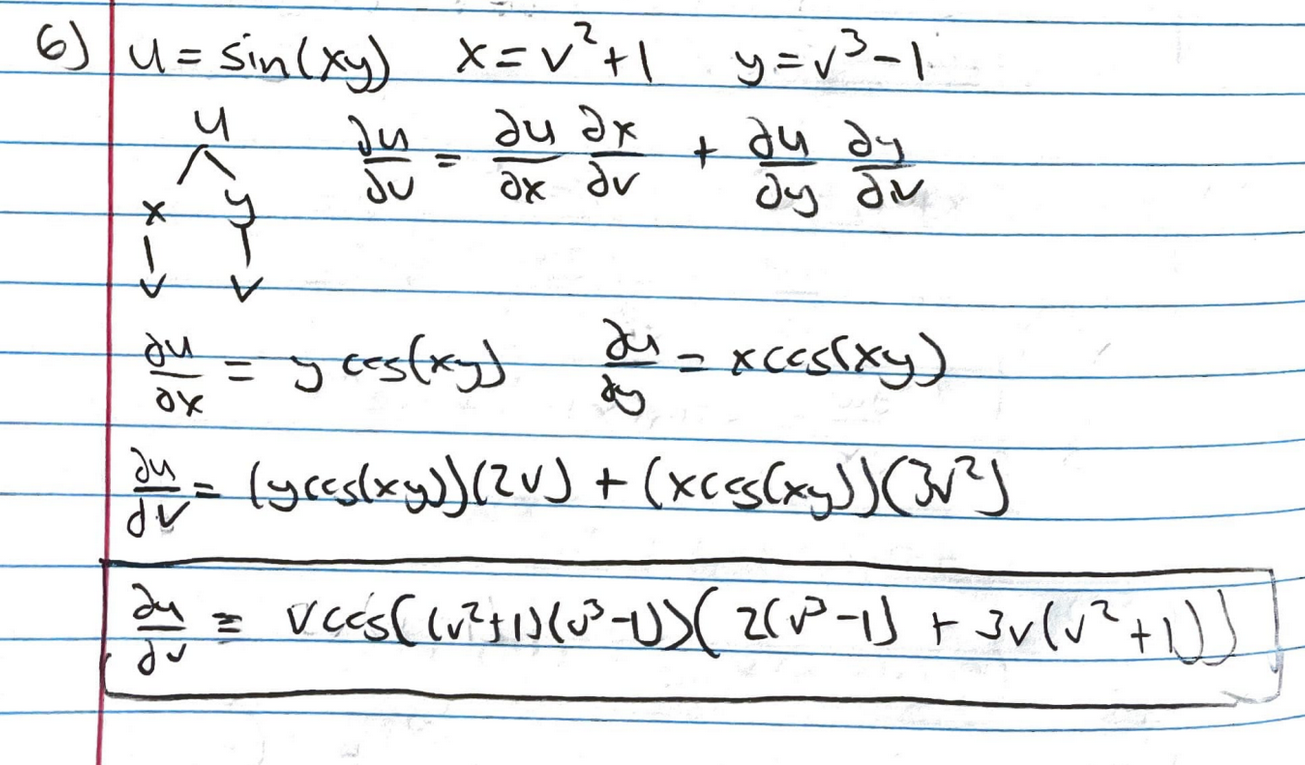 6) u = sin(xy) x = v²+1 y = v³-1
u
x y
v v
∂u/∂v = ∂u/∂x ∂x/∂v + ∂u/∂y ∂y/∂v
∂u/∂x = y cos(xy) ∂u/∂y = x cos(xy)
∂u/∂v = (y cos(xy))(2v) + (x cos(xy))(3v²)
∂u/∂v = v cos((v²+1)(v³-1))(2(v³-1) + 3v(v²+1))